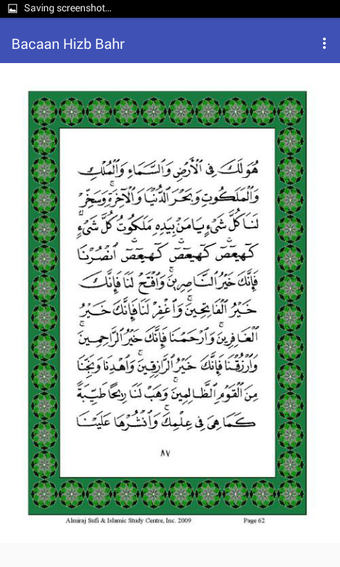 Saving screenshot...
Bacaan Hizb Bahr
هُوَ لَكَ فِي الْأَرْضِ وَالسَّمَاءِ وَالْمُلْكِ
وَالْمَلَكُوتِ وَبَحْرَ الدُّنْيَا وَالْآخِرَةِ وَسَخِّرْ
لَنَا كُلَّ شَيْءٍ يَا مَنْ بِيَدِهِ مَلَكُوتُ كُلِّ شَيْءٍ
كهيعص كهيعص كهيعص انْصُرْنَا
فَإِنَّكَ خَيْرُ النَّاصِرِينَ وَافْتَحْ لَنَا فَإِنَّكَ
خَيْرُ الْفَاتِحِينَ وَاغْفِرْ لَنَا فَإِنَّكَ خَيْرُ
الْغَافِرِينَ وَارْحَمْنَا فَإِنَّكَ خَيْرُ الرَّاحِمِينَ
وَارْزُقْنَا فَإِنَّكَ خَيْرُ الرَّازِقِينَ وَاهْدِنَا وَنَجِّنَا
مِنَ الْقَوْمِ الظَّالِمِينَ وَهَبْ لَنَا رِيحًا طَيِّبَةً
كَمَا هِيَ فِي عِلْمِكَ وَانْشُرْهَا عَلَيْنَا
٨٧
Almiraj Sufi & Islamic Study Centre, Inc. 2009 Page 62